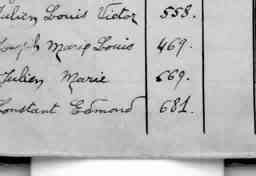 Julien Louis Victor 558.
Joseph Marie Louis 469.
Julien Marie 669.
Constant Edmond 681.